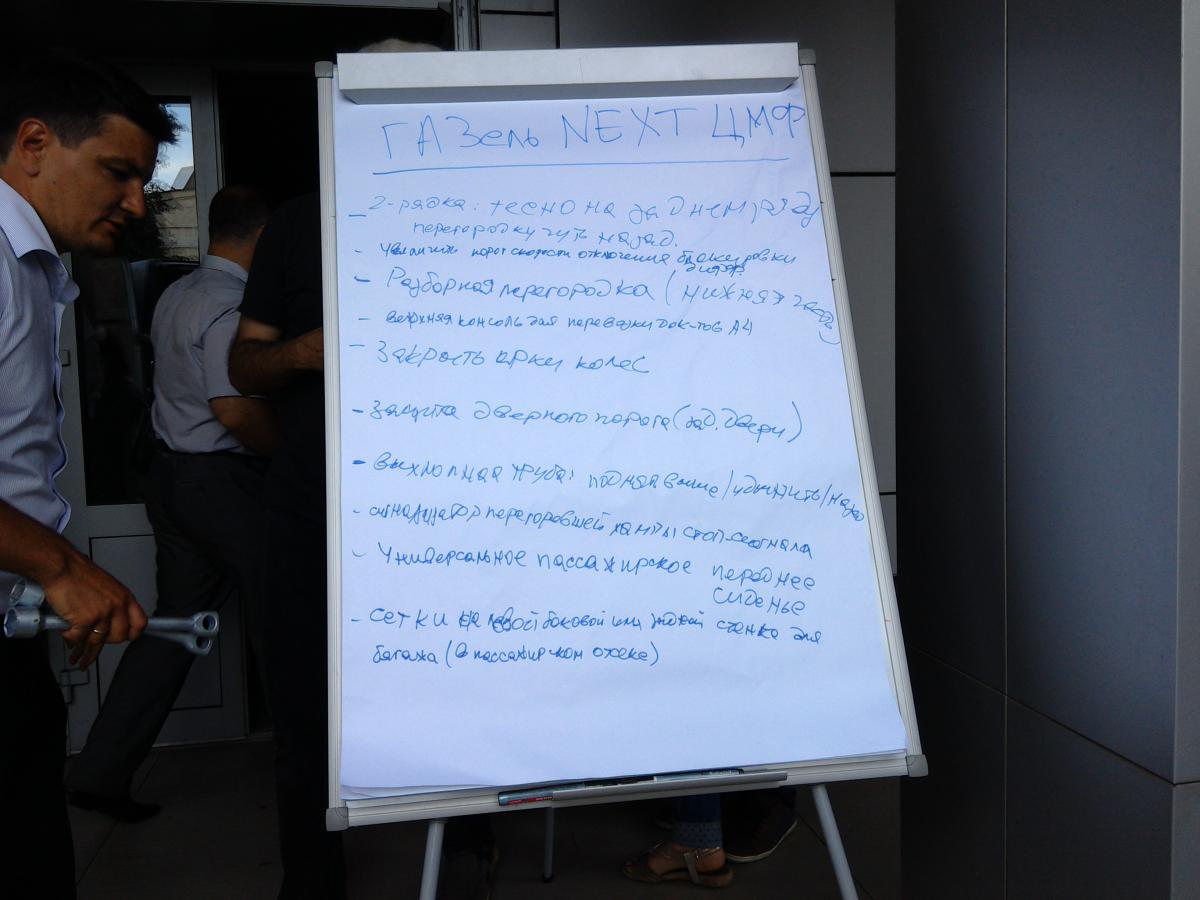 ГАЗель NEXT ЦМФ
- 2-рядка: тесно на заднем ряду
перегородку чуть назад.
- Увеличить порог скорости отключения блокировки
дифф.
- Разборная перегородка (нижняя часть)
- верхняя консоль для перевозки док-тов А4
- Закрыть арки колес
- Защита дверного порога (зад. двери)
- выхлопная труба: поднять выше/удлинить/назад
- сигнализатор перегоревшей лампы стоп-сигнала
- Универсальное пассажирское переднее
сиденье
- сетки на левой боковой или задней стенке для
багажа (в пассажирском отсеке)